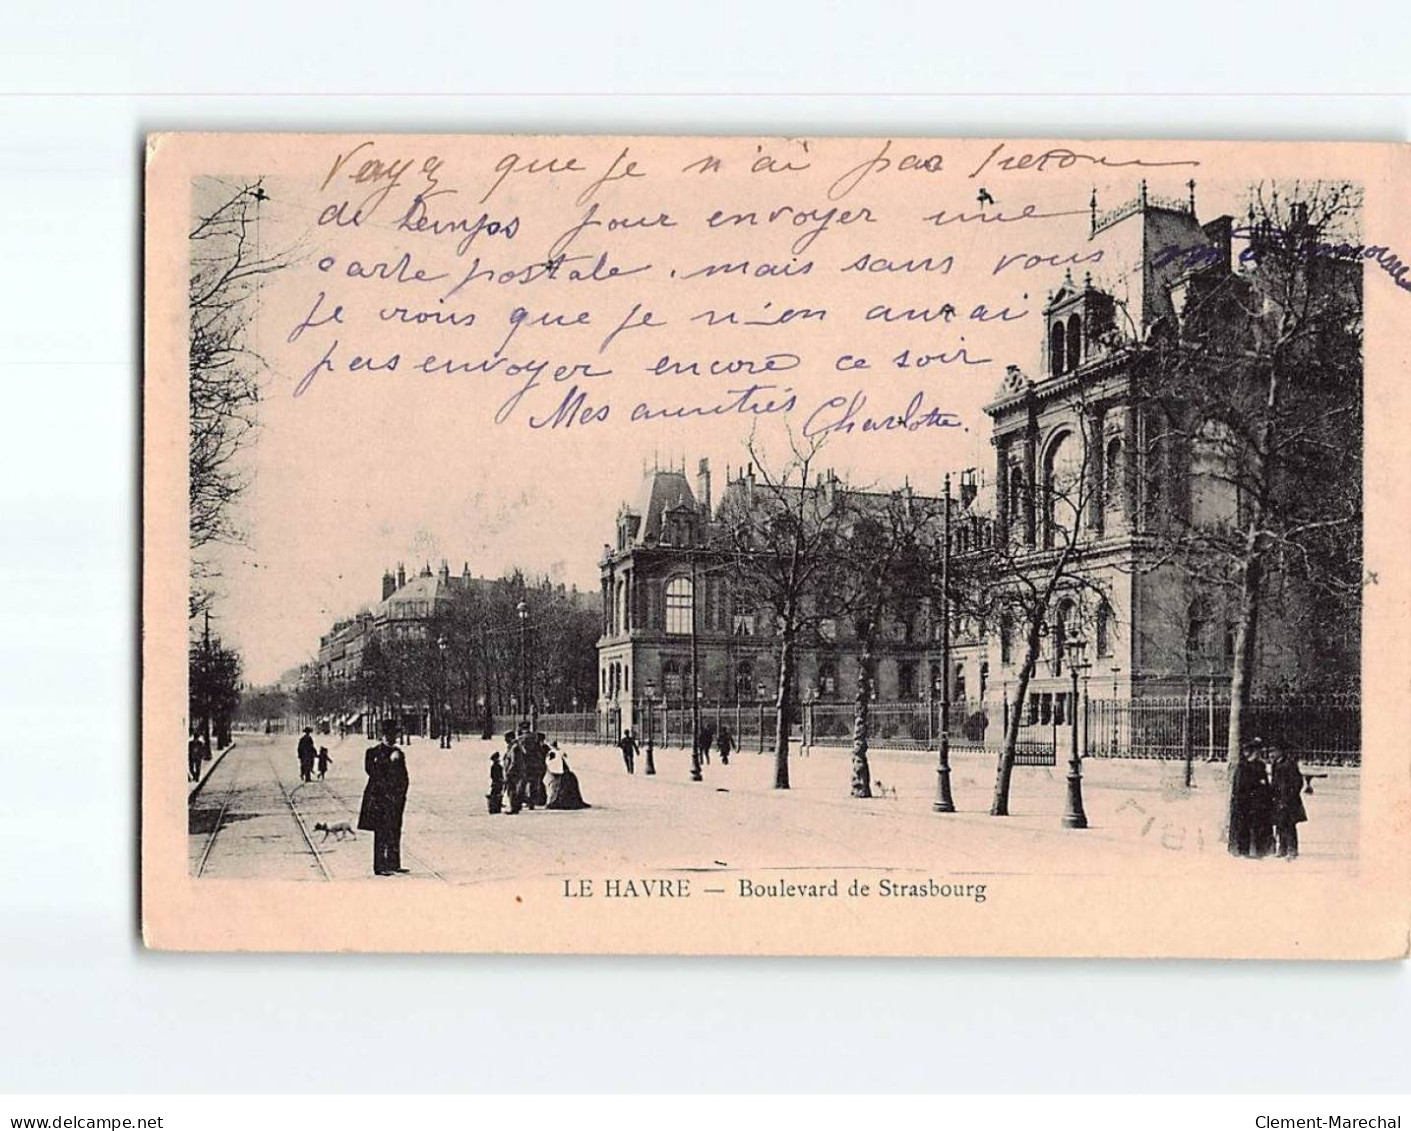 Voyez que je n'ai pas
de temps pour envoyer une
carte postale. mais sans vous
je crois que je n'en aurai
pas envoyer encore ce soir
Mes amitiés Charlotte.
LE HAVRE — Boulevard de Strasbourg
www.delcampe.net
Clement-Marechal